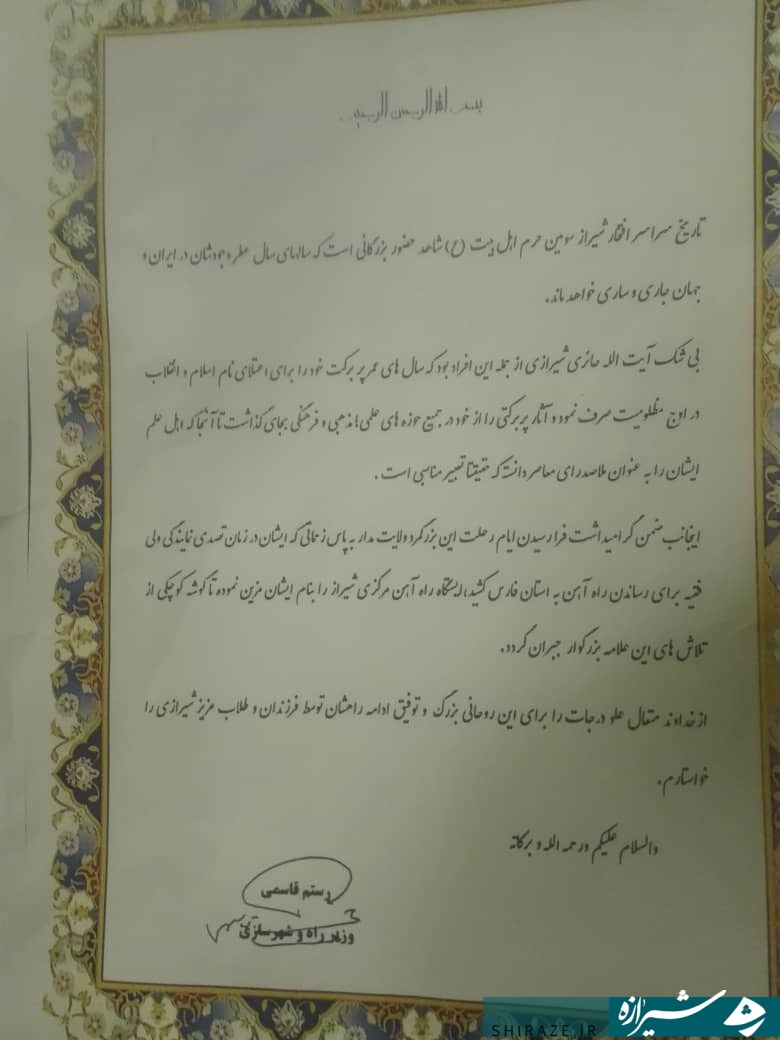 بسم الله الرحمن الرحیم
تاریخ سراسر افتخار شیراز سومین حرم اهل بیت (ع) شاهد حضور بزرگانی است که سالهای سال عطر وجودشان در ایران و
جهان جاری و ساری خواهد ماند.
بی شک آیت الله حائری شیرازی از جمله این افراد بود که سال های عمر پر برکت خود را برای اعتلای نام اسلام و انقلاب
در اوج مظلومیت صرف نمود و آثار پر برکتی را از خود در جمیع حوزه های علمی؛ مذهبی و فرهنگی بجای گذاشت تا آنجا که اهل علم
ایشان را به عنوان ملاصدرای معاصر دانست که حقیقتا تعبیر مناسبی است .
اینجانب ضمن گرامیداشت فرا رسیدن ایام رحلت این بزرگمرد ولایت مدار به پاس زحماتی که ایشان در زمان تصدی نمایندگی ولی
فقیه برای رساندن راه آهن به استان فارس کشید، ایستگاه راه آهن مرکزی شیراز را بنام ایشان مزین نموده تا گوشه کوچکی از
تلاش های این علامه بزرگوار جبران گردد.
از خداوند متعال علو درجات را برای این روحانی بزرگ و توفیق ادامه راهشان توسط فرزندان و طلاب عزیز شیرازی را
خواستارم.
والسلام علیکم و رحمه الله و برکاته
رستم قاسمی
وزیر راه و شهرسازی
شیرازه
SHIRAZE.IR